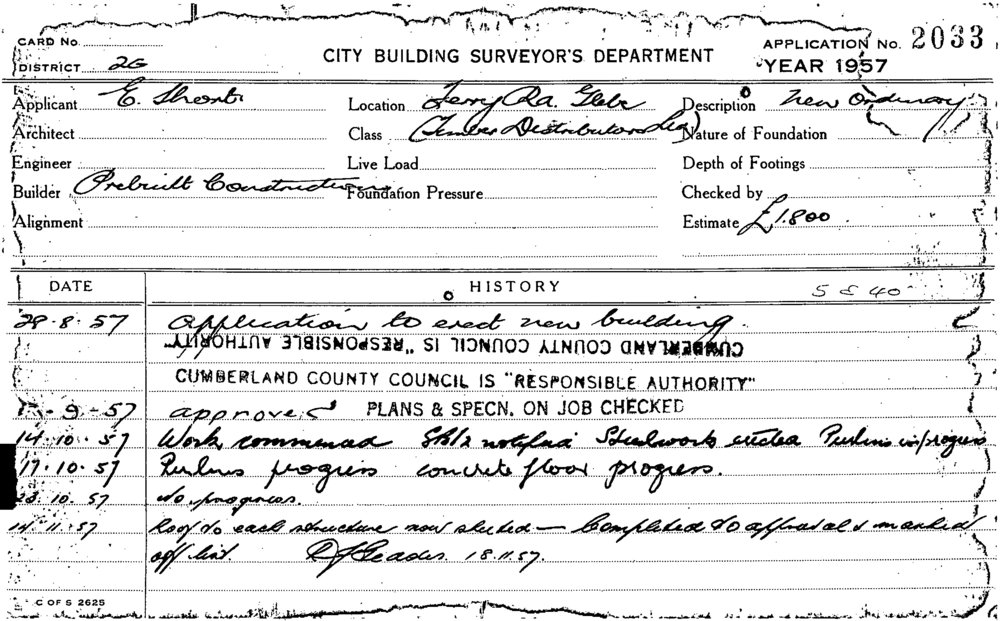 CARD No.
CITY BUILDING SURVEYOR'S DEPARTMENT
APPLICATION No. 2033
DISTRICT 2G
YEAR 1957
Applicant E. Short
Location Ferry Rd. Glebe
Description New Ordinary
Architect
Class (Timber Distributors
Nature of Foundation
Engineer
Live Load
Depth of Footings
Builder Prebuilt Constructions
Foundation Pressure
Checked by
Alignment
Estimate £1.800
DATE
HISTORY
5 & 40
28.8.57 Application to erect new building.
CUMBERLAND COUNTY COUNCIL IS "RESPONSIBLE AUTHORITY"
CUMBERLAND COUNTY COUNCIL IS "RESPONSIBLE AUTHORITY"
9-57 approved PLANS & SPECN. ON JOB CHECKED
14.10.57 Work commenced notified Steelwork erected Purlins in progress
17.10.57 Purlins progress concrete floor progress.
23.10.57 No progress.
14.11.57 Roof to each structure now sheeted — Completed to approval & marked
off list. 18.11.57.
C OF S 2625